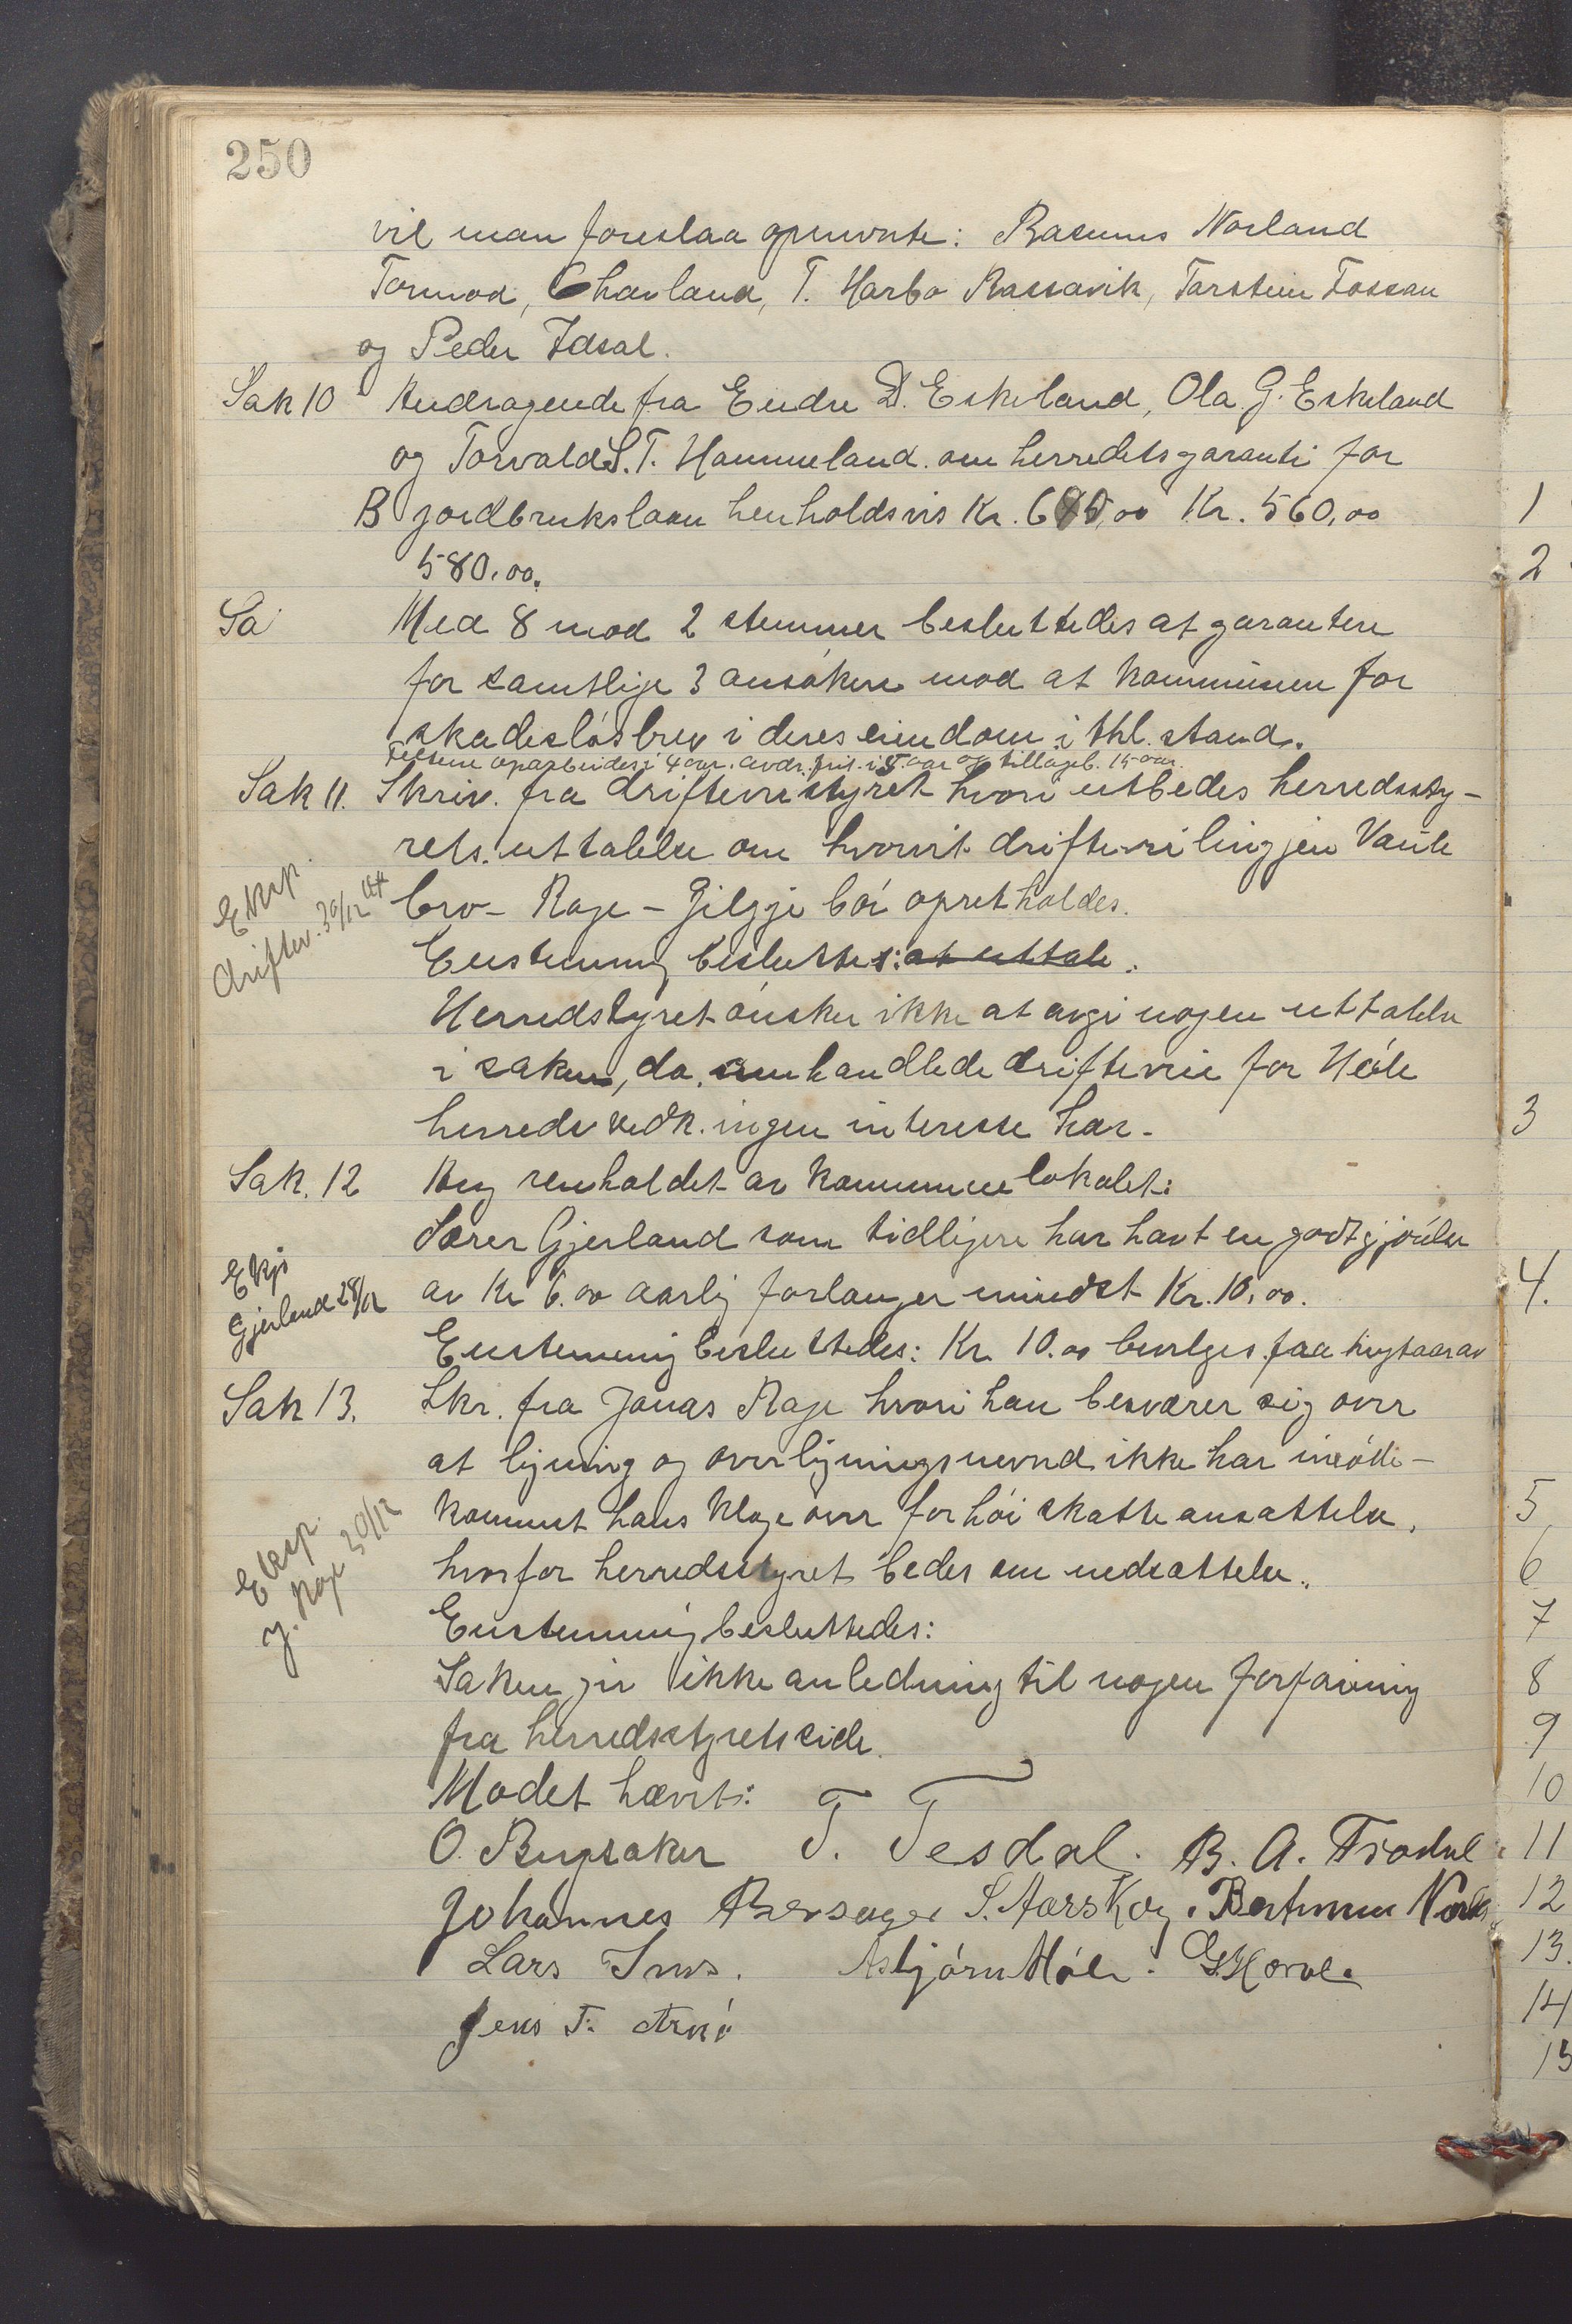 250
vil man foreslaa opnævnte: Rasmus Norland
Tormod, Chavland, T. Harbo Rassavik, Torstein Fossan
og Peder Idsal.
Sak 10 Andragende fra Endre D. Eskeland, Ola G. Eskeland
og Torvald S. T. Hammeland om herredets garanti for
B jordbrukslaan henholdsvis Kr. 600,00 Kr. 560,00
580,00.
Sa Med 8 mod 2 stemmer besluttedes at garantere
for samtlige 3 ansökere mod at kommunen for
skadeslösbrev i deres eiendom i thl. stand.
oparbeides i 4 aar. avdr. frit i 5 aar og tilbageb. 15 aar.
Sak 11. Skriv. fra drifteveistyret hvori utbedes herredssty-
rets uttalelse om hvorvit drifteveilingjen Vaule
bro - Rage - Gilgje bör opretholdes.
Eksp. driftev. 30/12
Enstemmig besluttes: at uttale:
Herredstyret önsker ikke at avgi nogen uttalelse
i saken, da omhandlede drifteveie for Höle
herreds vedk. ingen interesse har.
Sak. 12 Ang renholdet av kommunelokalet:
Sören Gjerland som tidligere har havt en godtgjörelse
av Kr 6.00 aarlig forlanger mindst Kr. 10,00.
Eksp Gjerland 28/12
Enstemmig besluttedes: Kr. 10.00 bevilges paa
Sak 13. Skr. fra Jonas Rage hvori han besværer sig over
at ligning og overligningsnevnd ikke har imöte-
kommet hans klage over for höi skatteansættelse,
hvorfor herredsstyret bedes om nedsættelse.
Eksp. J. Rage 30/12
Enstemmig besluttedes:
Saken gir ikke anledning til nogen forföining
fra herredsstyrets side.
Mödet hævet:
O. Bugsaker T. Tesdal. B. A. Frodal
Johannes Bersage S. Aarskog. Bertinius
Lars Ims. Asbjörn Höle. G. Horve.
Jens T.
1
2
3
4.
5
6
7
8
9
10
11
12
13.
14
15